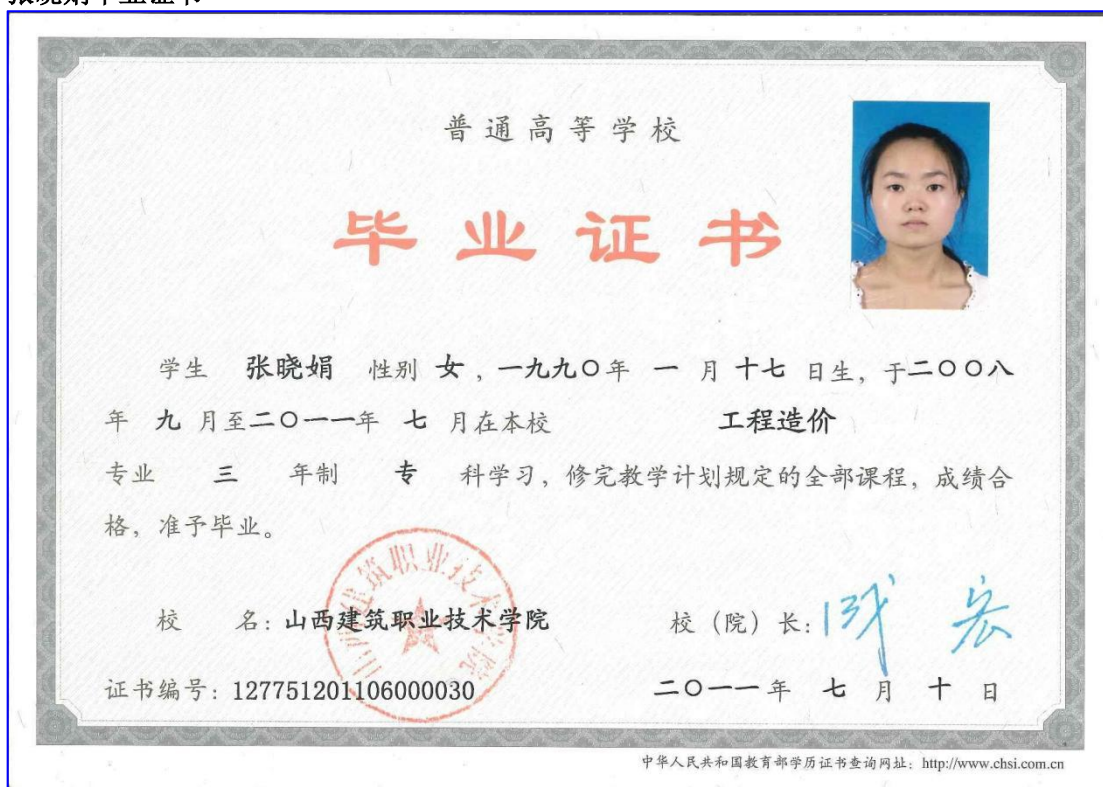 张晓娟毕业证书
普通高等学校
毕业证书
学生 张晓娟 性别 女，一九九〇年 一 月 十七 日生，于二〇〇八
年 九 月至二〇一一年 七 月在本校 工程造价
专业 三 年制 专 科学习，修完教学计划规定的全部课程，成绩合
格，准予毕业。
山西建筑职业技术学院
校 名：山西建筑职业技术学院 校（院）长：
证书编号：127751201106000030 二〇一一年 七 月 十 日
中华人民共和国教育部学历证书查询网址：http://www.chsi.com.cn